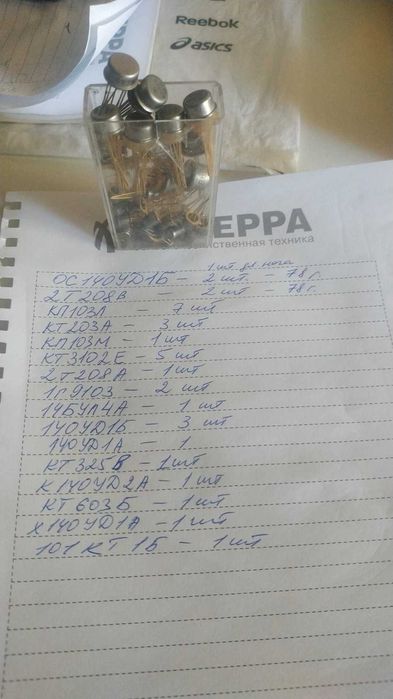 Reebok
asics
ЕРРА
йственная техника
1 шт. дл. нога
ОС140УД1Б - 2 шт. - 78 г.
2Т208В - 2 шт - 78 г.
КП103Л - 7 шт
КТ203А - 3 шт
КП103М - 1 шт
КТ3102Е - 5 шт
2Т208А - 1 шт
2 шт
1 шт
140УД1Б - 3 шт
140УД1А - 1
КТ325В - 1 шт
К140УД2А - 1 шт
КТ603Б - 1 шт
Х140УД1А - 1 шт
101КТ1Б - 1 шт